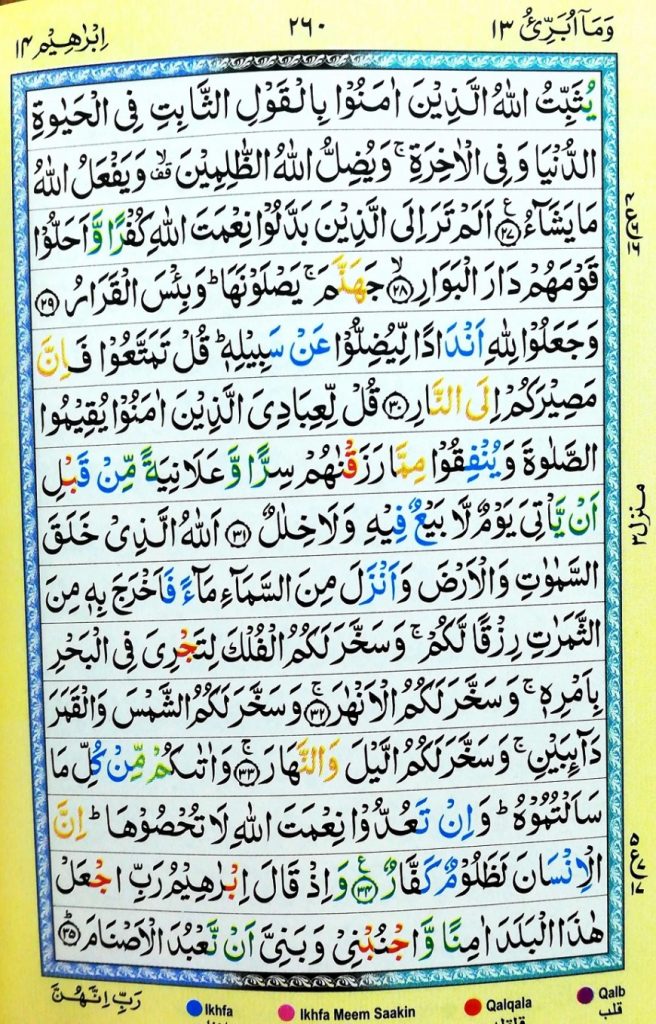 وَمَآ اُبَرِّئُ ١٣
٢٦٠
اِبْرٰهِيْم ١٤
يُثَبِّتُ اللّٰهُ الَّذِيْنَ اٰمَنُوْا بِالْقَوْلِ الثَّابِتِ فِى الْحَيٰوةِ
الدُّنْيَا وَفِى الْاٰخِرَةِ ۚ وَيُضِلُّ اللّٰهُ الظّٰلِمِيْنَ ۙ قف وَيَفْعَلُ اللّٰهُ
مَا يَشَآءُ ع ﴿٢٧﴾ اَلَمْ تَرَ اِلَى الَّذِيْنَ بَدَّلُوْا نِعْمَتَ اللّٰهِ كُفْرًا وَّاَحَلُّوْا
قَوْمَهُمْ دَارَ الْبَوَارِ ۙ ﴿٢٨﴾ جَهَنَّمَ ۚ يَصْلَوْنَهَا ؕ وَبِئْسَ الْقَرَارُ ﴿٢٩﴾
وَجَعَلُوْا لِلّٰهِ اَنْدَادًا لِّيُضِلُّوْا عَنْ سَبِيْلِهٖ ؕ قُلْ تَمَتَّعُوْا فَاِنَّ
مَصِيْرَكُمْ اِلَى النَّارِ ﴿٣٠﴾ قُلْ لِّعِبَادِىَ الَّذِيْنَ اٰمَنُوْا يُقِيْمُوا
الصَّلٰوةَ وَيُنْفِقُوْا مِمَّا رَزَقْنٰهُمْ سِرًّا وَّعَلَانِيَةً مِّنْ قَبْلِ
اَنْ يَّاْتِىَ يَوْمٌ لَّا بَيْعٌ فِيْهِ وَلَا خِلٰلٌ ﴿٣١﴾ اَللّٰهُ الَّذِىْ خَلَقَ
السَّمٰوٰتِ وَالْاَرْضَ وَاَنْزَلَ مِنَ السَّمَآءِ مَآءً فَاَخْرَجَ بِهٖ مِنَ
الثَّمَرٰتِ رِزْقًا لَّكُمْ ۚ وَسَخَّرَ لَكُمُ الْفُلْكَ لِتَجْرِىَ فِى الْبَحْرِ
بِاَمْرِهٖ ۚ وَسَخَّرَ لَكُمُ الْاَنْهٰرَ ۚ ﴿٣٢﴾ وَسَخَّرَ لَكُمُ الشَّمْسَ وَالْقَمَرَ
دَآئِبَيْنِ ۚ وَسَخَّرَ لَكُمُ الَّيْلَ وَالنَّهَارَ ۚ ﴿٣٣﴾ وَاٰتٰىكُمْ مِّنْ كُلِّ مَا
سَاَلْتُمُوْهُ ؕ وَاِنْ تَعُدُّوْا نِعْمَتَ اللّٰهِ لَا تُحْصُوْهَا ؕ اِنَّ
الْاِنْسَانَ لَظَلُوْمٌ كَفَّارٌ ع ﴿٣٤﴾ وَاِذْ قَالَ اِبْرٰهِيْمُ رَبِّ اجْعَلْ
هٰذَا الْبَلَدَ اٰمِنًا وَّاجْنُبْنِىْ وَبَنِىَّ اَنْ نَّعْبُدَ الْاَصْنَامَ ؕ ﴿٣٥﴾
منزل ٣
رَبِّ اِنَّهُنَّ
Ikhfa
Ikhfa Meem Saakin
Qalqala
Qalb
قلب